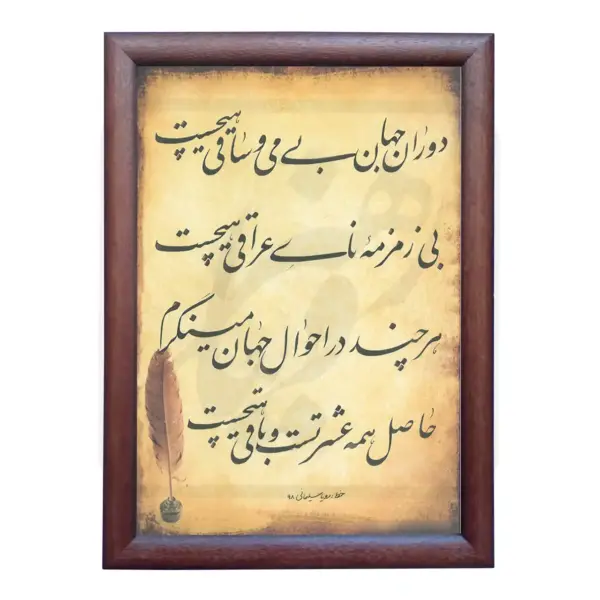 دوران جهان بے می و ساقی هیچست
بی زمزمهٔ ناے عراقی هیچست
هر چند در احوال جهان مینگرم
حاصل همه عشرتست و باقی هیچست
خط: رویا سلیمانی ۹۸